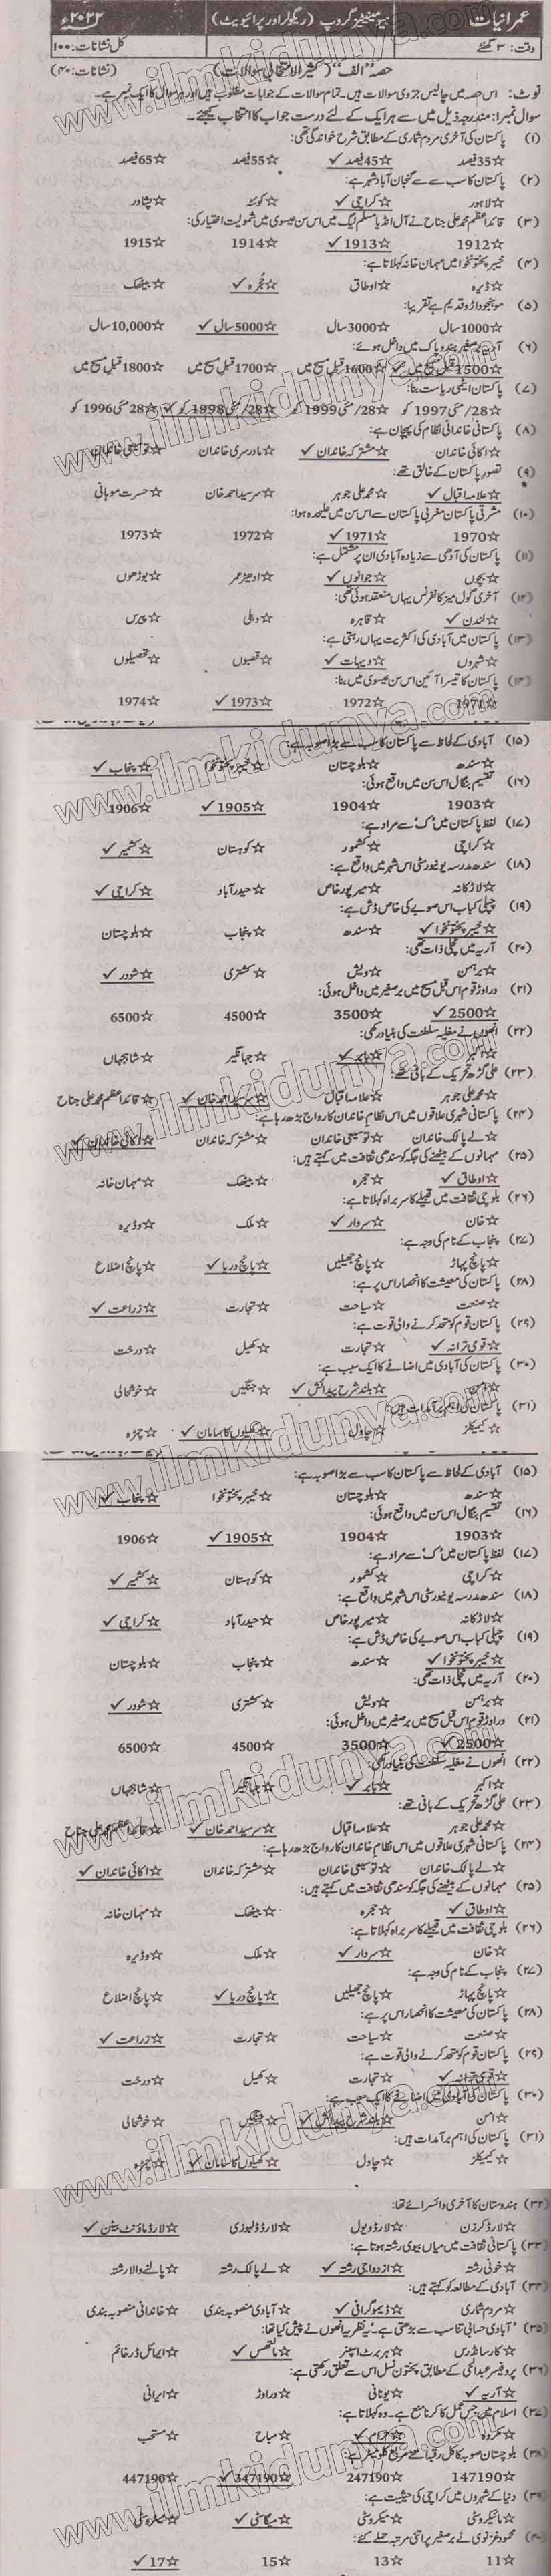 عمرانیات ہیومینیٹیز گروپ (ریگولر اور پرائیویٹ) ۲۰۲۲ء
وقت: ۳ گھنٹے کل نشانات: ۱۰۰
حصہ "الف" (کثیر الانتخابی سوالات) (نشانات: ۴۰)
نوٹ: اس حصہ میں چالیس جزوی سوالات ہیں۔ تمام سوالات کے جوابات مطلوب ہیں اور ہر سوال کا ایک نمبر ہے۔
سوال نمبر ۱: مندرجہ ذیل میں سے ہر ایک کے لئے درست جواب کا انتخاب کیجئے۔
(۱) پاکستان کی آخری مردم شماری کے مطابق شرح خواندگی تھی:
☆35 فیصد ☆45 فیصد ✓ ☆55 فیصد ☆65 فیصد
(۲) پاکستان کا سب سے گنجان آباد شہر ہے:
☆لاہور ☆کراچی ✓ ☆کوئٹہ ☆پشاور
(۳) قائداعظم محمد علی جناح نے آل انڈیا مسلم لیگ میں اس سن عیسوی میں شمولیت اختیار کی:
☆1912 ☆1913 ✓ ☆1914 ☆1915
(۴) خیبر پختونخوا میں مہمان خانہ کہلاتا ہے:
☆ڈیرہ ☆اوطاق ☆حُجرہ ✓ ☆بیٹھک
(۵) موہنجوداڑو قدیم ہے تقریباً:
☆1000 سال ☆3000 سال ☆5000 سال ✓ ☆10,000 سال
(۶) آریہ برصغیر ہندو پاک میں داخل ہوئے:
☆1500 قبل مسیح میں ✓ ☆1600 قبل مسیح میں ☆1700 قبل مسیح میں ☆1800 قبل مسیح میں
(۷) پاکستان ایٹمی ریاست بنا:
☆28/مئی 1997 کو ☆28/مئی 1999 کو ☆28/مئی 1998 کو ✓ ☆28/مئی 1996 کو
(۸) پاکستانی خاندانی نظام کی پہچان ہے:
☆اکائی خاندان ☆مشترکہ خاندان ✓ ☆مادرسری خاندان ☆توسیعی خاندان
(۹) تصور پاکستان کے خالق تھے:
☆علامہ اقبال ✓ ☆محمد علی جوہر ☆سر سید احمد خان ☆حسرت موہانی
(۱۰) مشرقی پاکستان مغربی پاکستان سے اس سن میں علیحدہ ہوا:
☆1970 ☆1971 ✓ ☆1972 ☆1973
(۱۱) پاکستان کی آدھی سے زیادہ آبادی ان پر مشتمل ہے:
☆بچوں ☆جوانوں ✓ ☆ادھیڑ عمر ☆بوڑھوں
(۱۲) آخری گول میز کانفرنس یہاں منعقد ہوئی تھی:
☆لندن ✓ ☆قاہرہ ☆دہلی ☆پیرس
(۱۳) پاکستان میں آبادی کی اکثریت یہاں رہتی ہے:
☆شہروں ☆دیہات ✓ ☆قصبوں ☆تحصیلوں
(۱۴) پاکستان کا تیسرا آئین اس سن عیسوی میں بنا:
☆1971 ☆1972 ☆1973 ✓ ☆1974
(۱۵) آبادی کے لحاظ سے پاکستان کا سب سے بڑا صوبہ ہے:
☆سندھ ☆بلوچستان ☆خیبر پختونخوا ☆پنجاب ✓
(۱۶) تقسیم بنگال اس سن میں واقع ہوئی:
☆1903 ☆1904 ☆1905 ✓ ☆1906
(۱۷) لفظ پاکستان میں 'ک' سے مراد ہے:
☆کراچی ☆کشمور ☆کوہستان ☆کشمیر ✓
(۱۸) سندھ مدرسہ یونیورسٹی اس شہر میں واقع ہے:
☆لاڑکانہ ☆میرپور خاص ☆حیدرآباد ☆کراچی ✓
(۱۹) چپلی کباب اس صوبے کی خاص ڈش ہے:
☆خیبر پختونخوا ✓ ☆سندھ ☆پنجاب ☆بلوچستان
(۲۰) آریہ میں نچلی ذات تھی:
☆برہمن ☆ویش ☆کشتری ☆شودر ✓
(۲۱) دراوڑ قوم اس قبل مسیح میں برصغیر میں داخل ہوئی:
☆2500 ✓ ☆3500 ☆4500 ☆6500
(۲۲) انھوں نے مغلیہ سلطنت کی بنیاد رکھی:
☆اکبر ☆بابر ✓ ☆جہانگیر ☆شاہجہاں
(۲۳) علی گڑھ تحریک کے بانی تھے:
☆محمد علی جوہر ☆علامہ اقبال ☆سر سید احمد خان ✓ ☆قائداعظم محمد علی جناح
(۲۴) پاکستانی شہری علاقوں میں اس نظام خاندان کا رواج بڑھ رہا ہے:
☆لے پالک خاندان ☆توسیعی خاندان ☆مشترکہ خاندان ☆اکائی خاندان ✓
(۲۵) مہمانوں کے بیٹھنے کی جگہ کو سندھی ثقافت میں کہتے ہیں:
☆اوطاق ✓ ☆حجرہ ☆بیٹھک ☆مہمان خانہ
(۲۶) بلوچی ثقافت میں قبیلے کا سربراہ کہلاتا ہے:
☆خان ☆سردار ✓ ☆ملک ☆وڈیرہ
(۲۷) پنجاب کے نام کی وجہ ہے:
☆پانچ پہاڑ ☆پانچ جھیلیں ☆پانچ دریا ✓ ☆پانچ اضلاع
(۲۸) پاکستان کی معیشت کا انحصار اس پر ہے:
☆صنعت ☆سیاحت ☆تجارت ☆زراعت ✓
(۲۹) پاکستان قوم کو متحد کرنے والی قوت ہے:
☆قومی ترانہ ✓ ☆تجارت ☆کھیل ☆درخت
(۳۰) پاکستان کی آبادی میں اضافے کا ایک سبب ہے:
☆امن ☆بلند شرح پیدائش ✓ ☆جنگیں ☆خوشحالی
(۳۱) پاکستان کی اہم برآمدات ہیں:
☆کیمیکلز ☆چاول ☆کھیلوں کا سامان ✓ ☆چمڑہ
(۱۵) آبادی کے لحاظ سے پاکستان کا سب سے بڑا صوبہ ہے:
☆سندھ ☆بلوچستان ☆خیبر پختونخوا ☆پنجاب ✓
(۱۶) تقسیم بنگال اس سن میں واقع ہوئی:
☆1903 ☆1904 ☆1905 ✓ ☆1906
(۱۷) لفظ پاکستان میں 'ک' سے مراد ہے:
☆کراچی ☆کشمور ☆کوہستان ☆کشمیر ✓
(۱۸) سندھ مدرسہ یونیورسٹی اس شہر میں واقع ہے:
☆لاڑکانہ ☆میرپور خاص ☆حیدرآباد ☆کراچی ✓
(۱۹) چپلی کباب اس صوبے کی خاص ڈش ہے:
☆خیبر پختونخوا ✓ ☆سندھ ☆پنجاب ☆بلوچستان
(۲۰) آریہ میں نچلی ذات تھی:
☆برہمن ☆ویش ☆کشتری ☆شودر ✓
(۲۱) دراوڑ قوم اس قبل مسیح میں برصغیر میں داخل ہوئی:
☆2500 ✓ ☆3500 ☆4500 ☆6500
(۲۲) انھوں نے مغلیہ سلطنت کی بنیاد رکھی:
☆اکبر ☆بابر ✓ ☆جہانگیر ☆شاہجہاں
(۲۳) علی گڑھ تحریک کے بانی تھے:
☆محمد علی جوہر ☆علامہ اقبال ☆سر سید احمد خان ✓ ☆قائداعظم محمد علی جناح
(۲۴) پاکستانی شہری علاقوں میں اس نظام خاندان کا رواج بڑھ رہا ہے:
☆لے پالک خاندان ☆توسیعی خاندان ☆مشترکہ خاندان ☆اکائی خاندان ✓
(۲۵) مہمانوں کے بیٹھنے کی جگہ کو سندھی ثقافت میں کہتے ہیں:
☆اوطاق ✓ ☆حجرہ ☆بیٹھک ☆مہمان خانہ
(۲۶) بلوچی ثقافت میں قبیلے کا سربراہ کہلاتا ہے:
☆خان ☆سردار ✓ ☆ملک ☆وڈیرہ
(۲۷) پنجاب کے نام کی وجہ ہے:
☆پانچ پہاڑ ☆پانچ جھیلیں ☆پانچ دریا ✓ ☆پانچ اضلاع
(۲۸) پاکستان کی معیشت کا انحصار اس پر ہے:
☆صنعت ☆سیاحت ☆تجارت ☆زراعت ✓
(۲۹) پاکستان قوم کو متحد کرنے والی قوت ہے:
☆قومی ترانہ ✓ ☆تجارت ☆کھیل ☆درخت
(۳۰) پاکستان کی آبادی میں اضافے کا ایک سبب ہے:
☆امن ☆بلند شرح پیدائش ✓ ☆جنگیں ☆خوشحالی
(۳۱) پاکستان کی اہم برآمدات ہیں:
☆کیمیکلز ☆چاول ☆کھیلوں کا سامان ✓ ☆چمڑہ
(۳۲) ہندوستان کا آخری وائسرائے تھا:
☆لارڈ کرزن ☆لارڈ ویول ☆لارڈ ڈلہوزی ☆لارڈ ماؤنٹ بیٹن ✓
(۳۳) پاکستانی ثقافت میں میاں بیوی رشتہ ہوتا ہے:
☆خونی رشتہ ☆ازدواجی رشتہ ✓ ☆لے پالک رشتہ ☆پالنے والا رشتہ
(۳۴) آبادی کے مطالعہ کو کہتے ہیں:
☆مردم شماری ☆ڈیموگرافی ✓ ☆آبادی منصوبہ بندی ☆خاندانی منصوبہ بندی
(۳۵) "آبادی حسابی تناسب سے بڑھتی ہے۔" یہ نظریہ انھوں نے پیش کیا تھا:
☆کارسانڈرس ☆ہربرٹ اسپنسر ☆مالتھس ✓ ☆ایمائل ڈرخائم
(۳۶) پروفیسر عبدالحی کے مطابق پختون نسل اس سے تعلق رکھتی ہے:
☆آریہ ✓ ☆یونانی ☆دراوڑ ☆ایرانی
(۳۷) اسلام میں جس عمل کا کرنا منع ہے۔ وہ کہلاتا ہے:
☆مکروہ ☆حرام ✓ ☆مباح ☆مستحب
(۳۸) بلوچستان صوبہ کا کل رقبہ اتنے مربع کلومیٹر ہے:
☆147190 ☆247190 ☆347190 ✓ ☆447190
(۳۹) دنیا کے شہروں میں کراچی کی حیثیت ہے:
☆مائیکروسٹی ☆میکروسٹی ☆میگاسٹی ✓ ☆میٹروسٹی
(۴۰) محمود غزنوی نے برصغیر پر اتنی مرتبہ حملے کئے:
☆11 ☆13 ☆15 ☆17 ✓
www.ilmkidunya.com
www.ilmkidunya.com
www.ilmkidunya.com
www.ilmkidunya.com
www.ilmkidunya.com
www.ilmkidunya.com
www.ilmkidunya.com
www.ilmkidunya.com